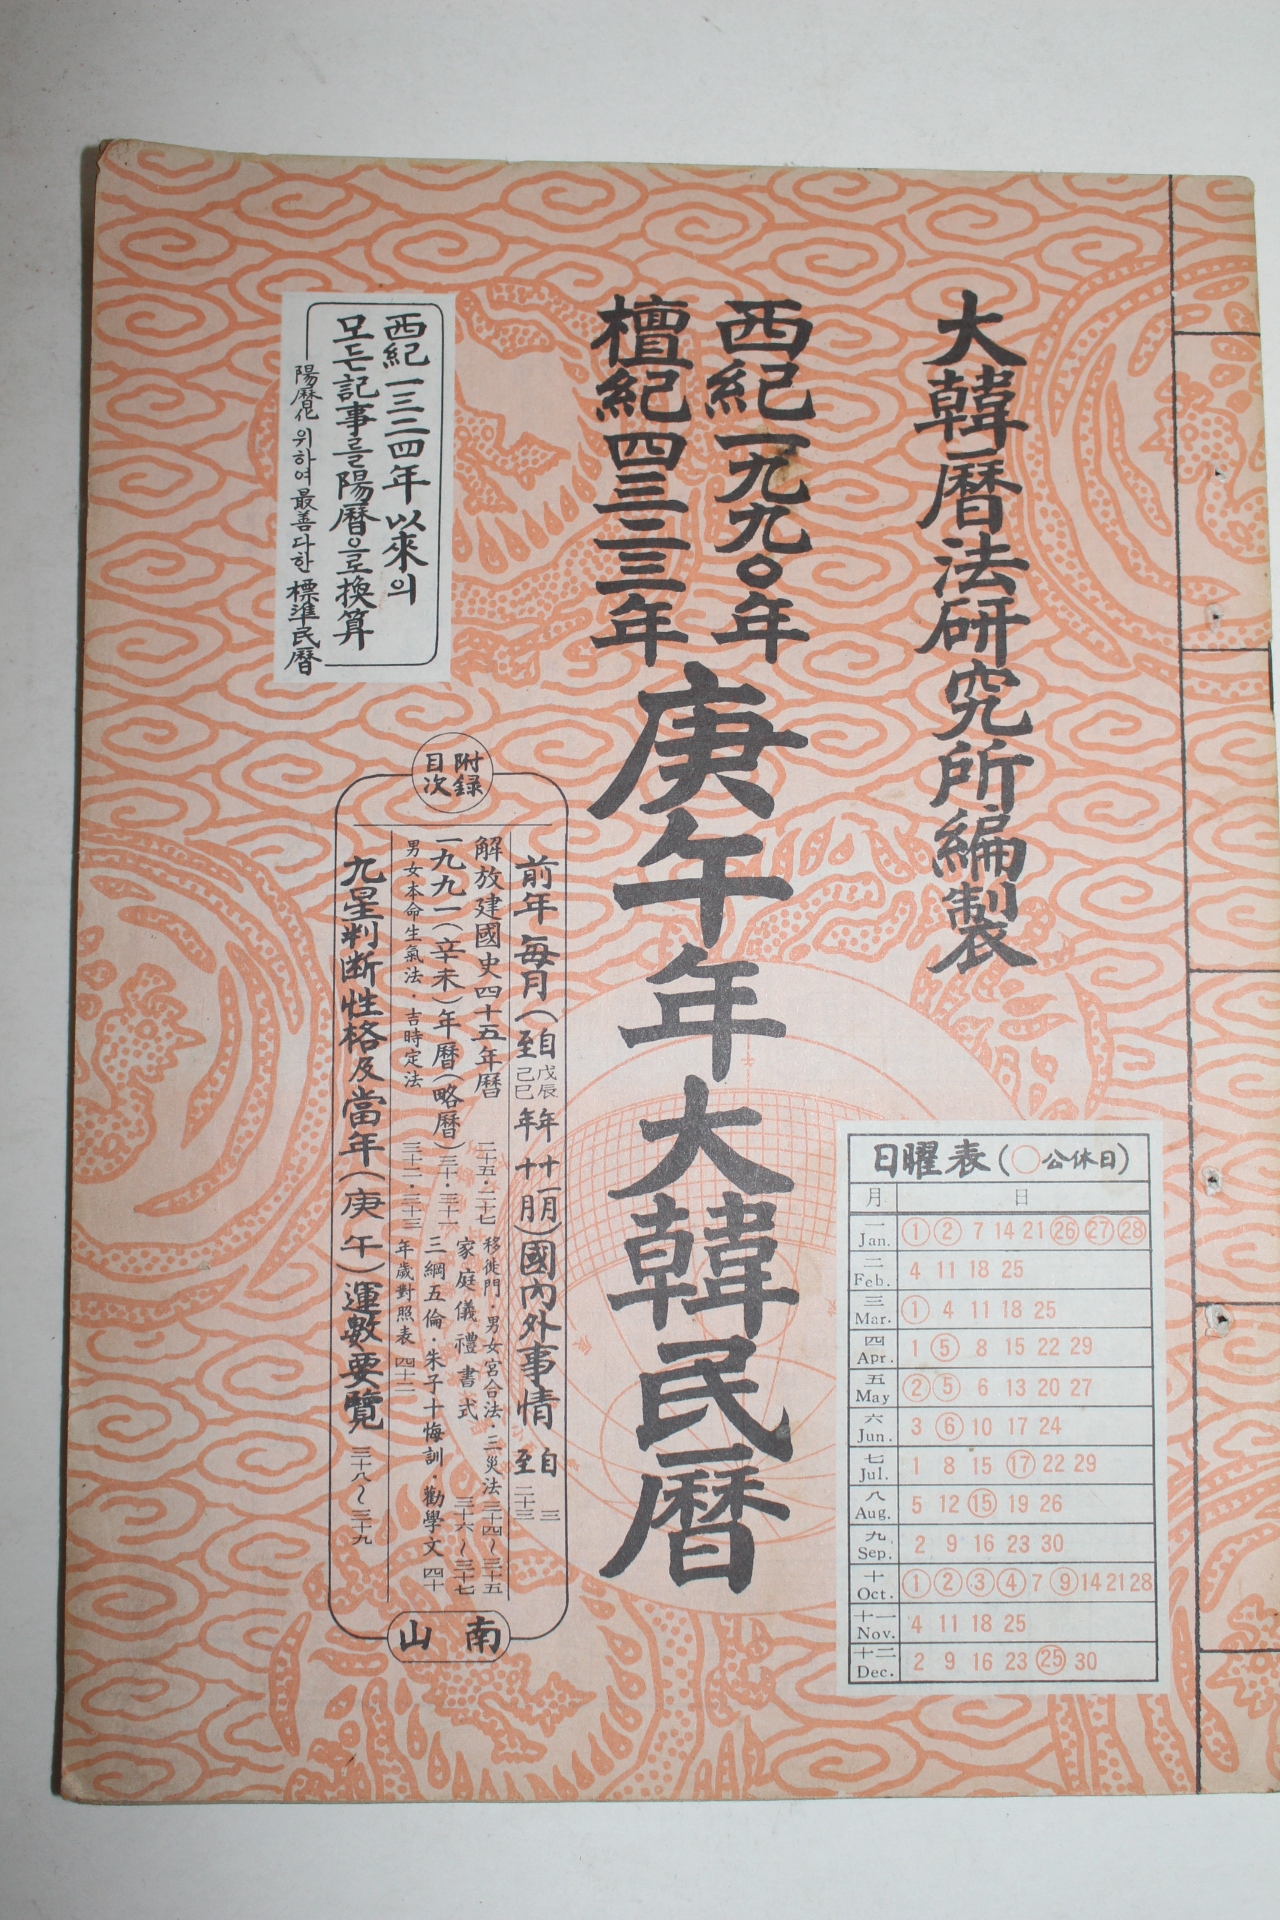 大韓曆法研究所編製
西紀一九九〇年
檀紀四三二三年
庚午年大韓民曆
西紀一三三四年以來의
모든記事를陽曆으로換算
陽曆化위하여最善다한標準民曆
附録
目次
前年每月(自戊辰年十一月
至己巳年十月)國內外事情 自三
至二十三
解放建國史四十五年曆 二十五・二十七 移徙門・男女宮合法・三災法 三十四～三十五
一九九一(辛未)年曆(略曆) 三十・三十一 家庭儀禮書式 三十六～三十七
三綱五倫・朱子十悔訓・勸學文 四十
男女本命生氣法・吉時定法 三十二・三十三 年歲對照表 四十二
九星判断性格及當年(庚午)運數要覽 三十八～三十九
南山
日曜表(○公休日)
月 日
一 Jan. ① ② 7 14 21 ㉖ ㉗ ㉘
二 Feb. 4 11 18 25
三 Mar. ① 4 11 18 25
四 Apr. 1 ⑤ 8 15 22 29
五 May ② ⑤ 6 13 20 27
六 Jun. 3 ⑥ 10 17 24
七 Jul. 1 8 15 ⑰ 22 29
八 Aug. 5 12 ⑮ 19 26
九 Sep. 2 9 16 23 30
十 Oct. ① ② ③ ④ 7 ⑨ 14 21 28
十一 Nov. 4 11 18 25
十二 Dec. 2 9 16 23 ㉕ 30